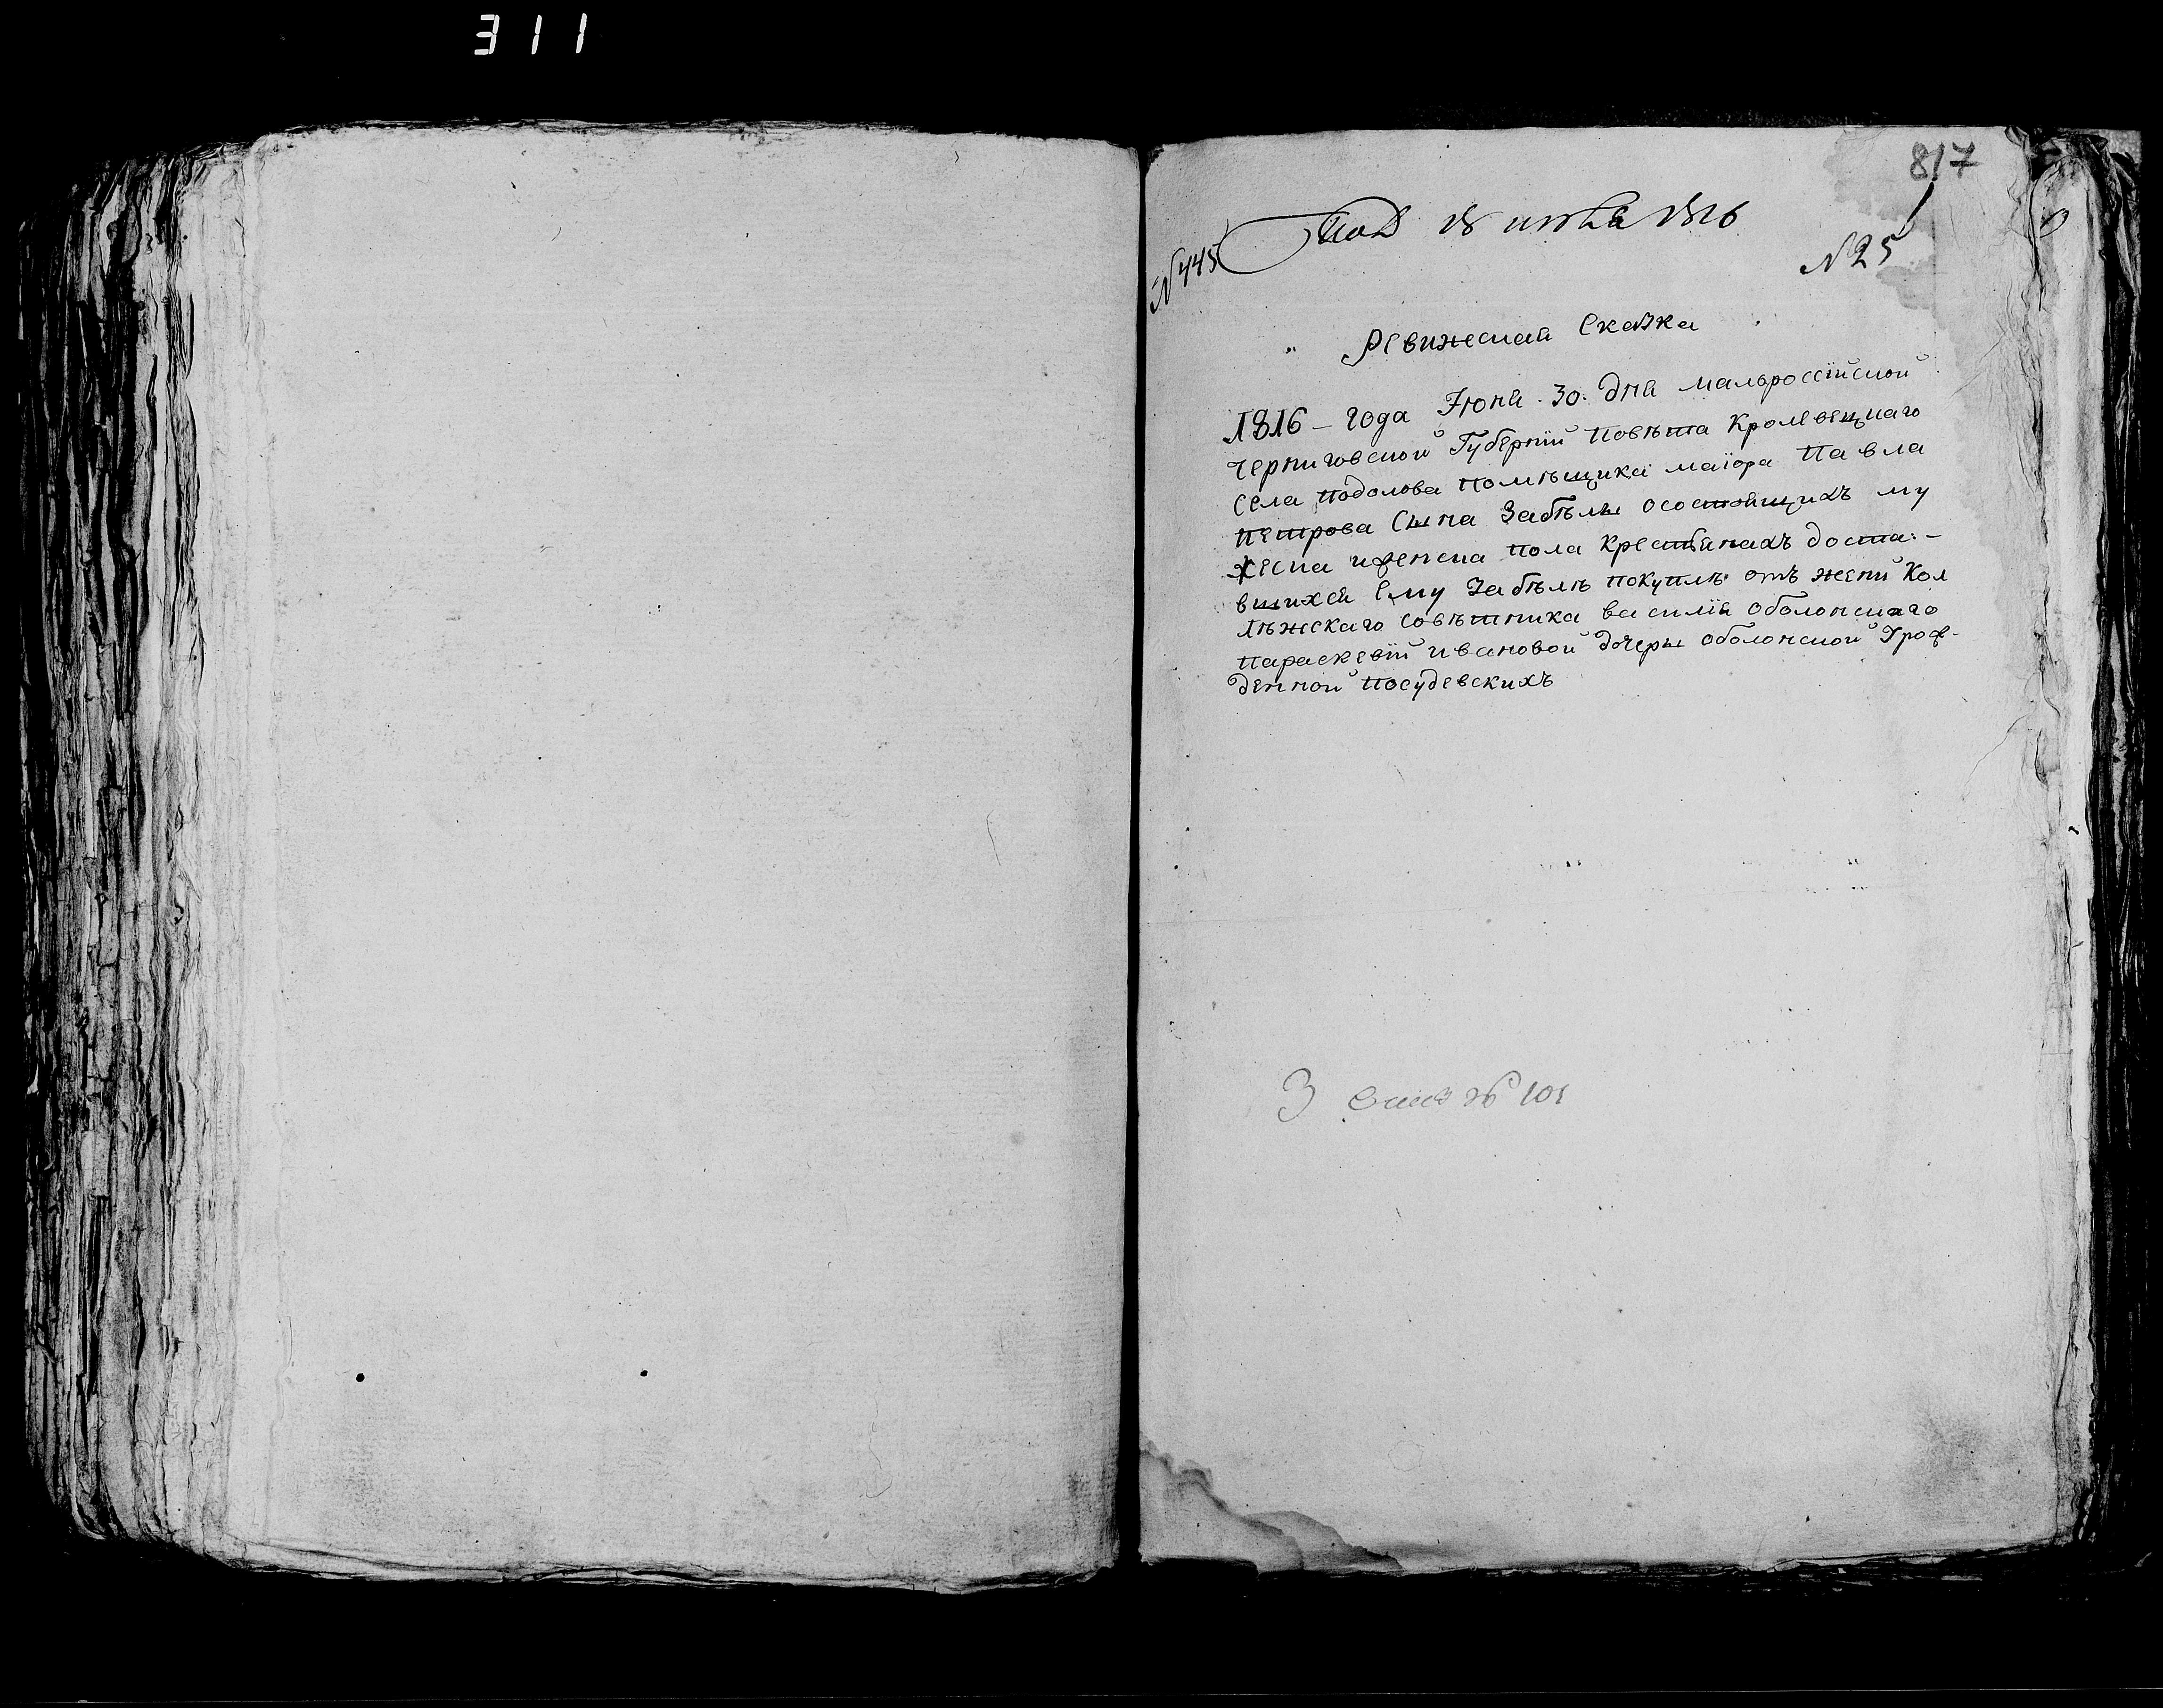 311
817
Под 18 июля 1816
№ 445
№ 25
Ревижская Сказка
1816 – года Іюня . 30 . дня малороссійской
черниговской Губерніи Повѣта Кролевецкаго
села подолова Помѣщика маіора Павла
петрова Сына Забѣлы осостоящихъ му
жеска иженска пола крестьянахъ доста: –
вшихся Ему Забѣлѣ покуплѣ отъ жени Кол
лѣжскаго совѣтника василія оболонскаго
параскевіи ивановой дочеры оболонской Урож-
денной посудевскихъ
3 № 101